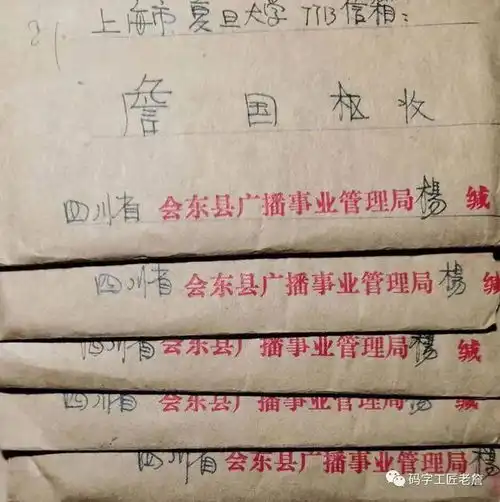 21.
上海市复旦大学7713信箱:
詹 国 枢 收
四川省 会东县广播事业管理局 楊 缄
四川省 会东县广播事业管理局 楊 缄
四川省 会东县广播事业管理局 楊 缄
四川省 会东县广播事业管理局 楊 缄
四川省 会东县广播事业管理局 楊
码字工匠老詹